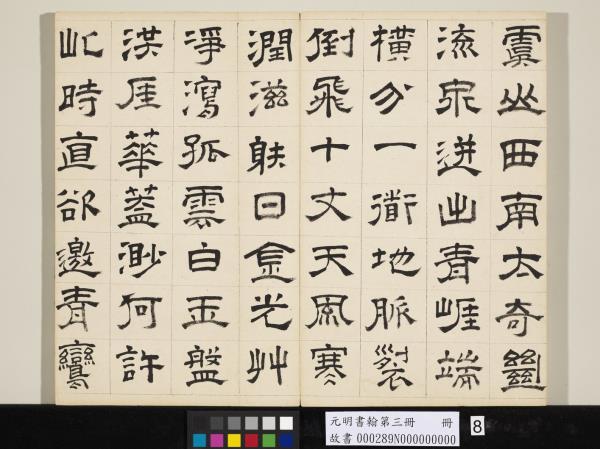 虞山西南太奇𢇍
流泉迸出青崕端
橫分一衜地脈裂
倒飛十丈天凮寒
潤滋映日金光艸
淨瀉孤雲白玉盤
洪厓華蓋渺何許
此時直欲邀青鸞
元明書翰第三冊 冊
故書 000289N000000000
8